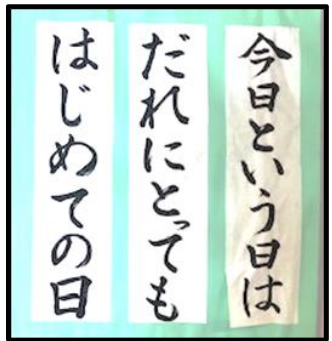 今日という日は
だれにとっても
はじめての日